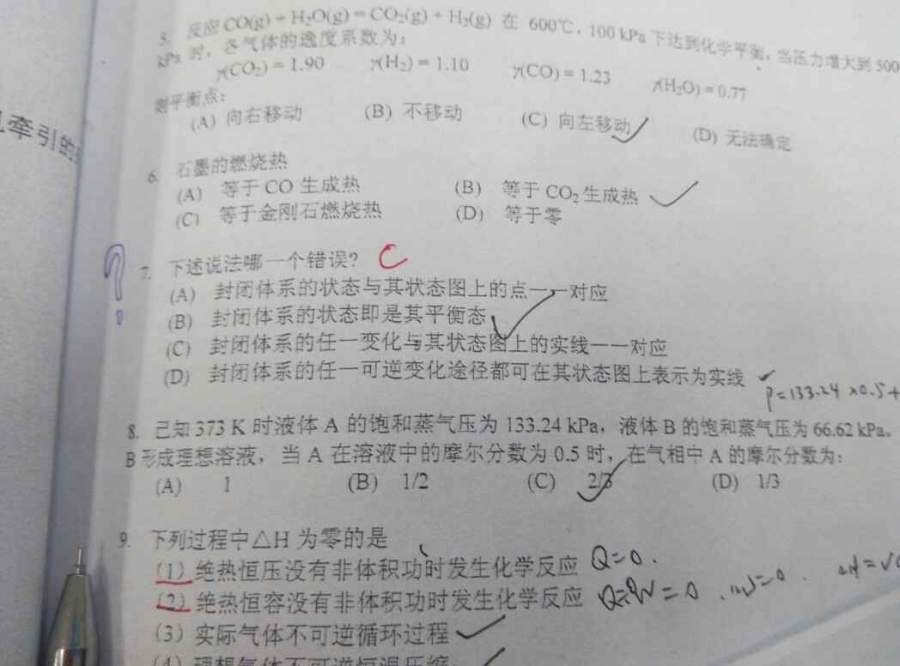 牵引的
5. 反应 CO(g) + H₂O(g) = CO₂(g) + H₂(g) 在 600℃, 100 kPa 下达到化学平衡, 当压力增大到 500
kPa 时, 各气体的逸度系数为:
γ(CO₂) = 1.90 γ(H₂) = 1.10 γ(CO) = 1.23 γ(H₂O) = 0.77
则平衡点:
(A) 向右移动 (B) 不移动 (C) 向左移动 (D) 无法确定
6. 石墨的燃烧热
(A) 等于 CO 生成热 (B) 等于 CO₂ 生成热
(C) 等于金刚石燃烧热 (D) 等于零
? 7. 下述说法哪一个错误? C
(A) 封闭体系的状态与其状态图上的点一一对应
(B) 封闭体系的状态即是其平衡态
(C) 封闭体系的任一变化与其状态图上的实线一一对应
(D) 封闭体系的任一可逆变化途径都可在其状态图上表示为实线
P=133.24×0.5+
8. 已知 373 K 时液体 A 的饱和蒸气压为 133.24 kPa, 液体 B 的饱和蒸气压为 66.62 kPa,
B 形成理想溶液, 当 A 在溶液中的摩尔分数为 0.5 时, 在气相中 A 的摩尔分数为:
(A) 1 (B) 1/2 (C) 2/3 (D) 1/3
9. 下列过程中△H 为零的是
(1) 绝热恒压没有非体积功时发生化学反应 Q=0.
(2) 绝热恒容没有非体积功时发生化学反应
(3) 实际气体不可逆循环过程
(4) 理想气体不可逆恒温压缩